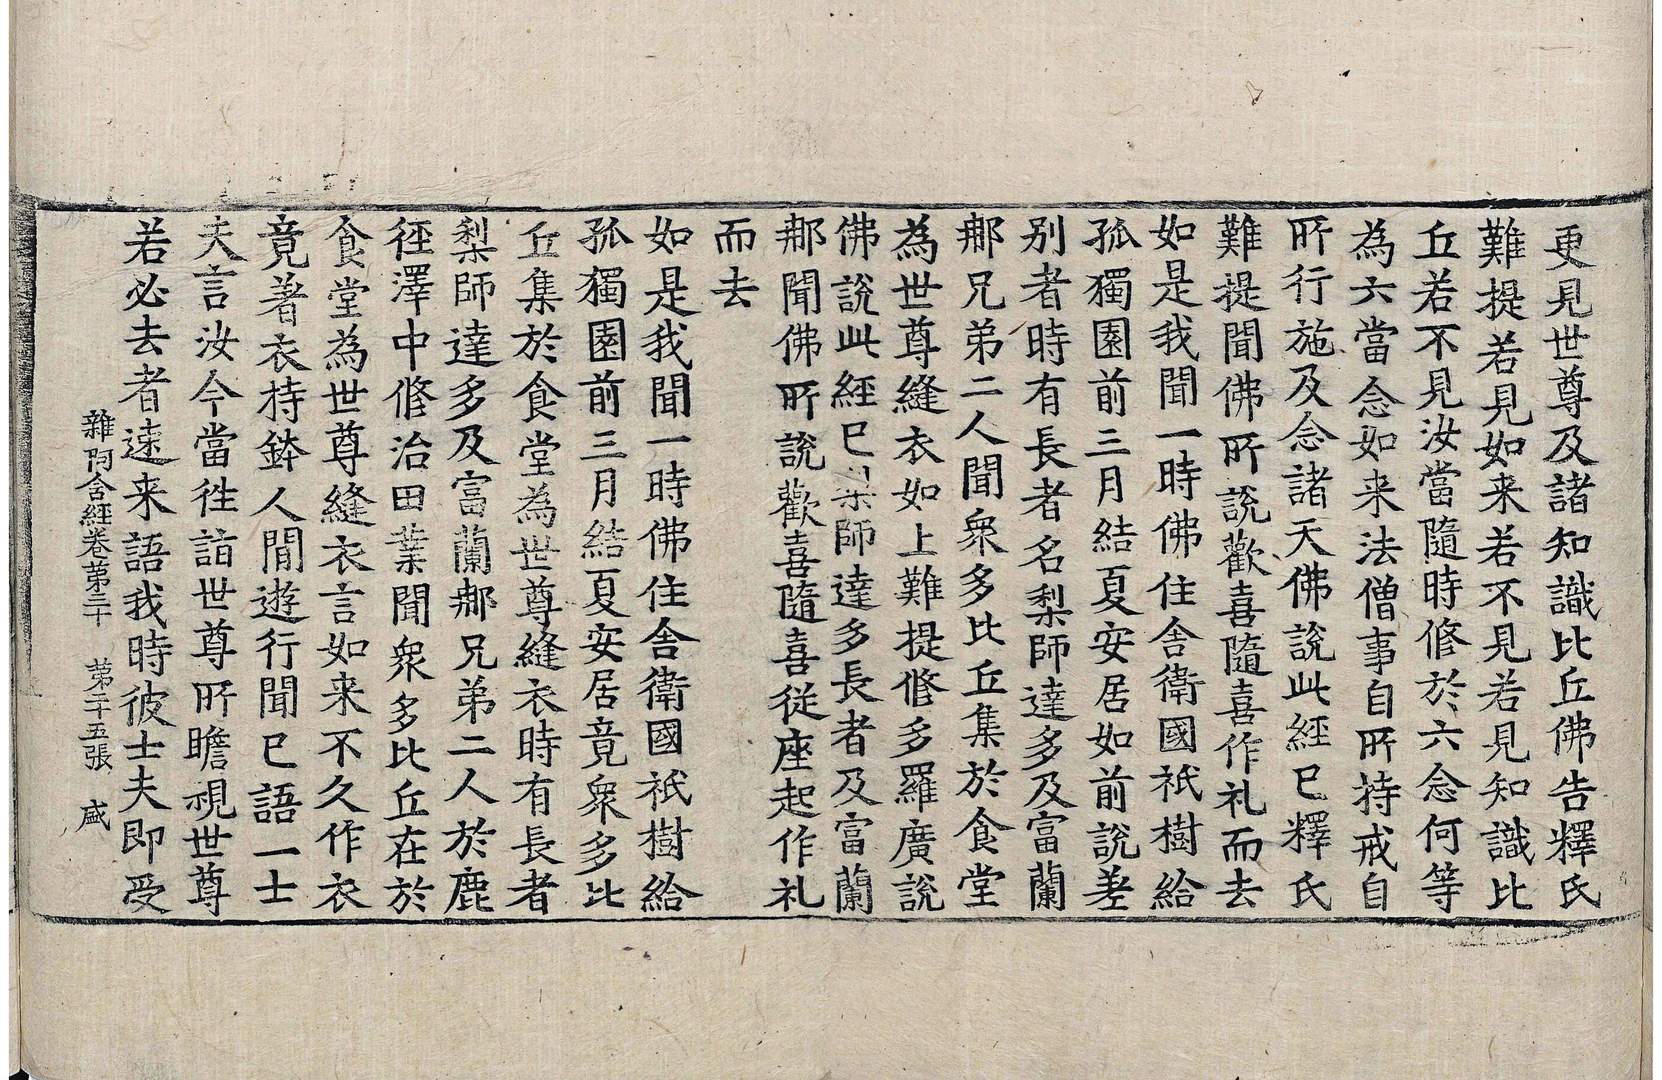 更見世尊及諸知識比丘佛告釋氏
難提若見如来若不見若見知識比
丘若不見汝當隨時修於六念何等
為六當念如来法僧事自所持戒自
所行施及念諸天佛說此經已釋氏
難提聞佛所說歡喜隨喜作礼而去
如是我聞一時佛住舍衛國祇樹給
孤獨園前三月結夏安居如前說差
別者時有長者名梨師達多及富蘭
那兄弟二人聞衆多比丘集於食堂
為世尊縫衣如上難提修多羅廣說
佛說此經已梨師達多長者及富蘭
那聞佛所說歡喜隨喜從座起作礼
而去
如是我聞一時佛住舍衛國祇樹給
孤獨園前三月結夏安居竟衆多比
丘集於食堂為世尊縫衣時有長者
梨師達多及富蘭那兄弟二人於鹿
徑澤中修治田業聞衆多比丘在於
食堂為世尊縫衣言如来不久作衣
竟著衣持鉢人間遊行聞已語一士
夫言汝今當往詣世尊所瞻視世尊
若必去者速来語我時彼士夫即受
雜阿含經卷第三十 第二十五張 盛